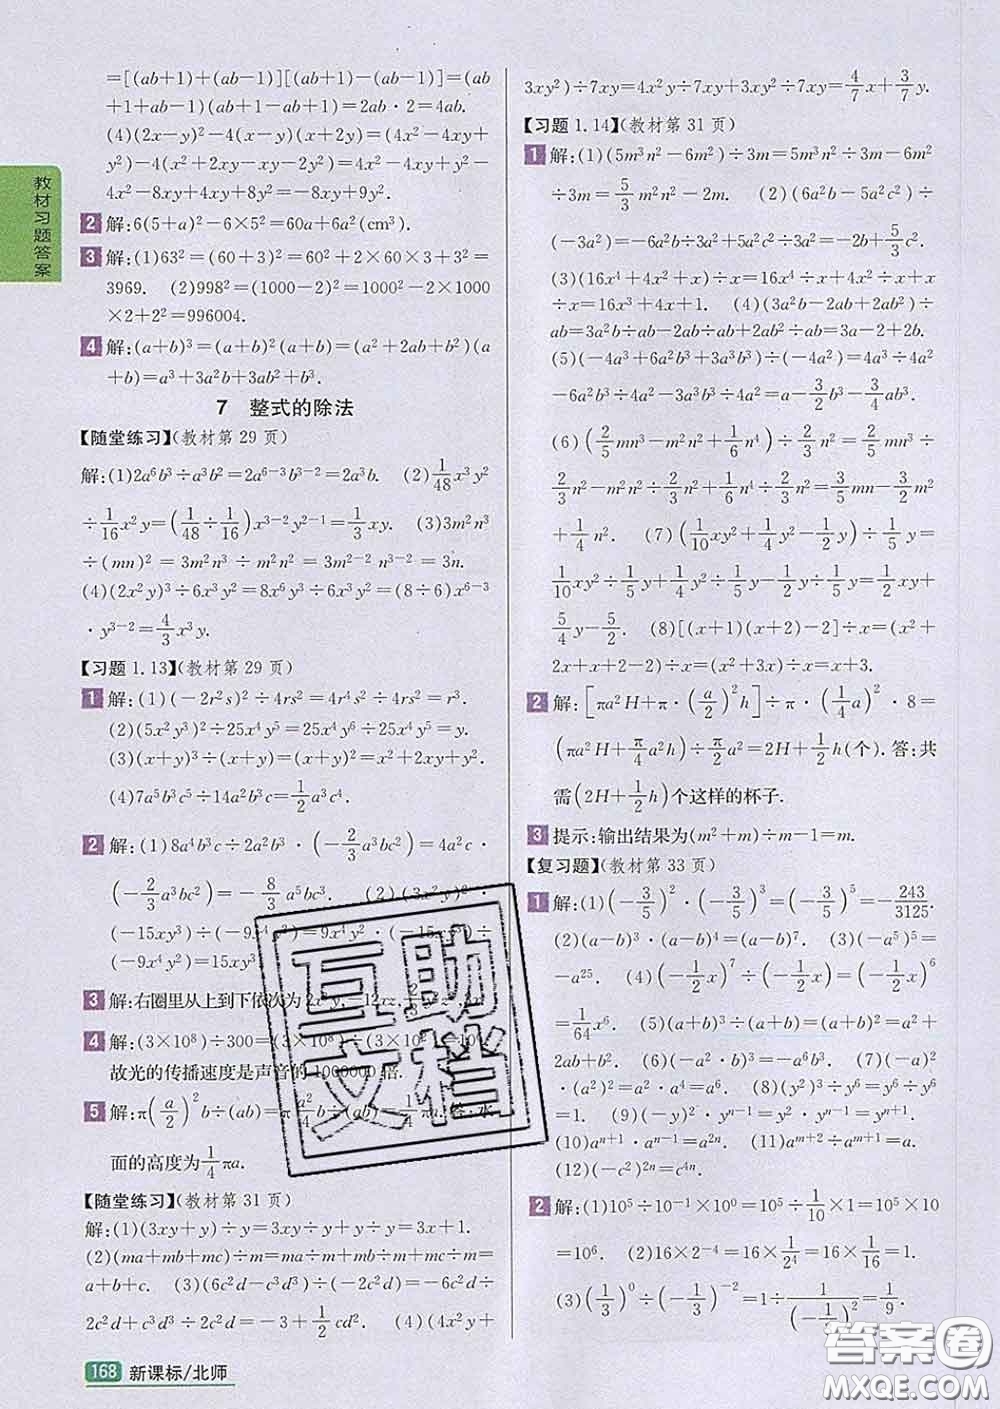 =[(ab+1)+(ab-1)][(ab+1)-(ab-1)]=(ab
+1+ab-1)(ab+1-ab+1)=2ab·2=4ab.
(4)(2x-y)²-4(x-y)(x+2y)=(4x²-4xy+
y²)-4(x²+2xy-xy-2y²)=4x²-4xy+y²-
4x²-8xy+4xy+8y²=-8xy+9y².
2 解:6(5+a)²-6×5²=60a+6a²(cm³).
3 解:(1)63²=(60+3)²=60²+2×60×3+3²=
3969. (2)998²=(1000-2)²=1000²-2×1000
×2+2²=996004.
4 解:(a+b)³=(a+b)²(a+b)=(a²+2ab+b²)(a
+b)=a³+3a²b+3ab²+b³.
7 整式的除法
【随堂练习】(教材第29页)
解:(1)2a⁶b³÷a³b²=2a⁶⁻³b³⁻²=2a³b. (2)1/48x³y²
÷1/16x²y=(1/48÷1/16)x³⁻²y²⁻¹=1/3xy. (3)3m²n³
÷(mn)²=3m²n³÷m²n²=3m²⁻²n³⁻²=3n.
(4)(2x²y)³÷6x³y²=8x⁶y³÷6x³y²=(8÷6)x⁶⁻³
·y³⁻²=4/3x³y.
【习题1.13】(教材第29页)
1 解:(1)(-2r²s)²÷4rs²=4r⁴s²÷4rs²=r³.
(2)(5x²y³)²÷25x⁴y⁵=25x⁴y⁶÷25x⁴y⁵=y.
(3)(x+y)³÷(x+y)=(x+y)²=x²+2xy+y².
(4)7a⁵b³c⁵÷14a²b³c=1/2a³c⁴.
2 解:(1)8a⁴b³c÷2a²b³·(-2/3a³bc²)=4a²c·
(-2/3a³bc²)=-8/3a⁵bc³. (2)(3x²y)²·
(-15xy³)÷(-9x⁴y²)=9x⁴y²·(-15xy³)÷
(-9x⁴y²)=15xy³.
3 解:右圈里从上到下依次为
4 解:(3×10⁸)÷300=(3×10⁸)÷(3×10²)=10⁶.
故光的传播速度是声音的1000000倍.
5 解:π(a/2)²b÷(ab)=πa²/4b÷(ab)=1/4πa.答:水
面的高度为1/4πa.
【随堂练习】(教材第31页)
解:(1)(3xy+y)÷y=3xy÷y+y÷y=3x+1.
(2)(ma+mb+mc)÷m=ma÷m+mb÷m+mc÷m=
a+b+c. (3)(6c²d-c³d³)÷(-2c²d)=-6c²d÷
2c²d+c³d³÷2c²d=-3+1/2cd². (4)(4x²y+
3xy²)÷7xy=4x²y÷7xy+3xy²÷7xy=4/7x+3/7y.
【习题1.14】(教材第31页)
1 解:(1)(5m³n²-6m²)÷3m=5m³n²÷3m-6m²
÷3m=5/3m²n²-2m. (2)(6a²b-5a²c²)÷
(-3a²)=-6a²b÷3a²+5a²c²÷3a²=-2b+5/3c².
(3)(16x⁴+4x²+x)÷x=16x⁴÷x+4x²÷x+x
÷x=16x³+4x+1. (4)(3a²b-2ab+2ab²)÷
ab=3a²b÷ab-2ab÷ab+2ab²÷ab=3a-2+2b.
(5)(-4a³+6a²b³+3a³b³)÷(-4a²)=4a³÷4a²
-6a²b³÷4a²-3a³b³÷4a²=a-3/2b³-3/4ab³.
(6)(2/5mn³-m²n²+1/6n⁴)÷2/3n²=2/5mn³÷
2/3n²-m²n²÷2/3n²+1/6n⁴÷2/3n²=3/5mn-3/2m²
+1/4n². (7)(1/10xy²+1/4y²-1/2y)÷1/5y=
1/10xy²÷1/5y+1/4y²÷1/5y-1/2y÷1/5y=1/2xy+
5/4y-5/2. (8)[(x+1)(x+2)-2]÷x=(x²+
2x+x+2-2)÷x=(x²+3x)÷x=x+3.
2 解:[πa²H+π·(a/2)²h]÷π·(1/4a)²·8=
(πa²H+π/4a²h)÷π/2a²=2H+1/2h(个).答:共
需(2H+1/2h)个这样的杯子.
3 提示:输出结果为(m²+m)÷m-1=m.
【复习题】(教材第33页)
1 解:(1)(-3/5)²·(-3/5)³=(-3/5)⁵=-243/3125.
(2)(a-b)³·(a-b)⁴=(a-b)⁷. (3)(-a⁵)⁵=
-a²⁵. (4)(-1/2x)⁷÷(-1/2x)=(-1/2x)⁶
=1/64x⁶. (5)(a+b)³÷(a+b)=(a+b)²=a²+
2ab+b². (6)(-a²·b)³=-a⁶b³. (7)(-a)²·
(-a)²=(-a)⁴=a⁴. (8)(y²)³÷y⁶=y⁶÷y⁶
=1. (9)(-y)²·yⁿ⁻¹=y²·yⁿ⁻¹=yⁿ⁺¹.
(10)aⁿ⁺¹·aⁿ⁻¹=a²ⁿ. (11)aᵐ⁺²÷aᵐ⁺¹=a.
(12)(-c²)²ⁿ=c⁴ⁿ.
2 解:(1)10⁵÷10⁻¹×10⁰=10⁵÷1/10×1=10⁵×10
=10⁶. (2)16×2⁻⁴=16×1/2⁴=16×1/16=1.
(3)(1/3)⁰÷(-1/3)⁻²=1÷1/(-1/3)²=1/9.
教材习题答案
168 新课标/北师
互助
文档
答案圈
MXQE.COM